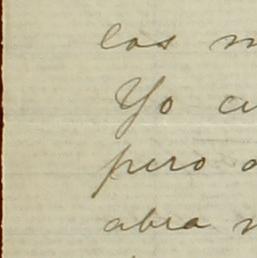 los
Yo
pero
abra